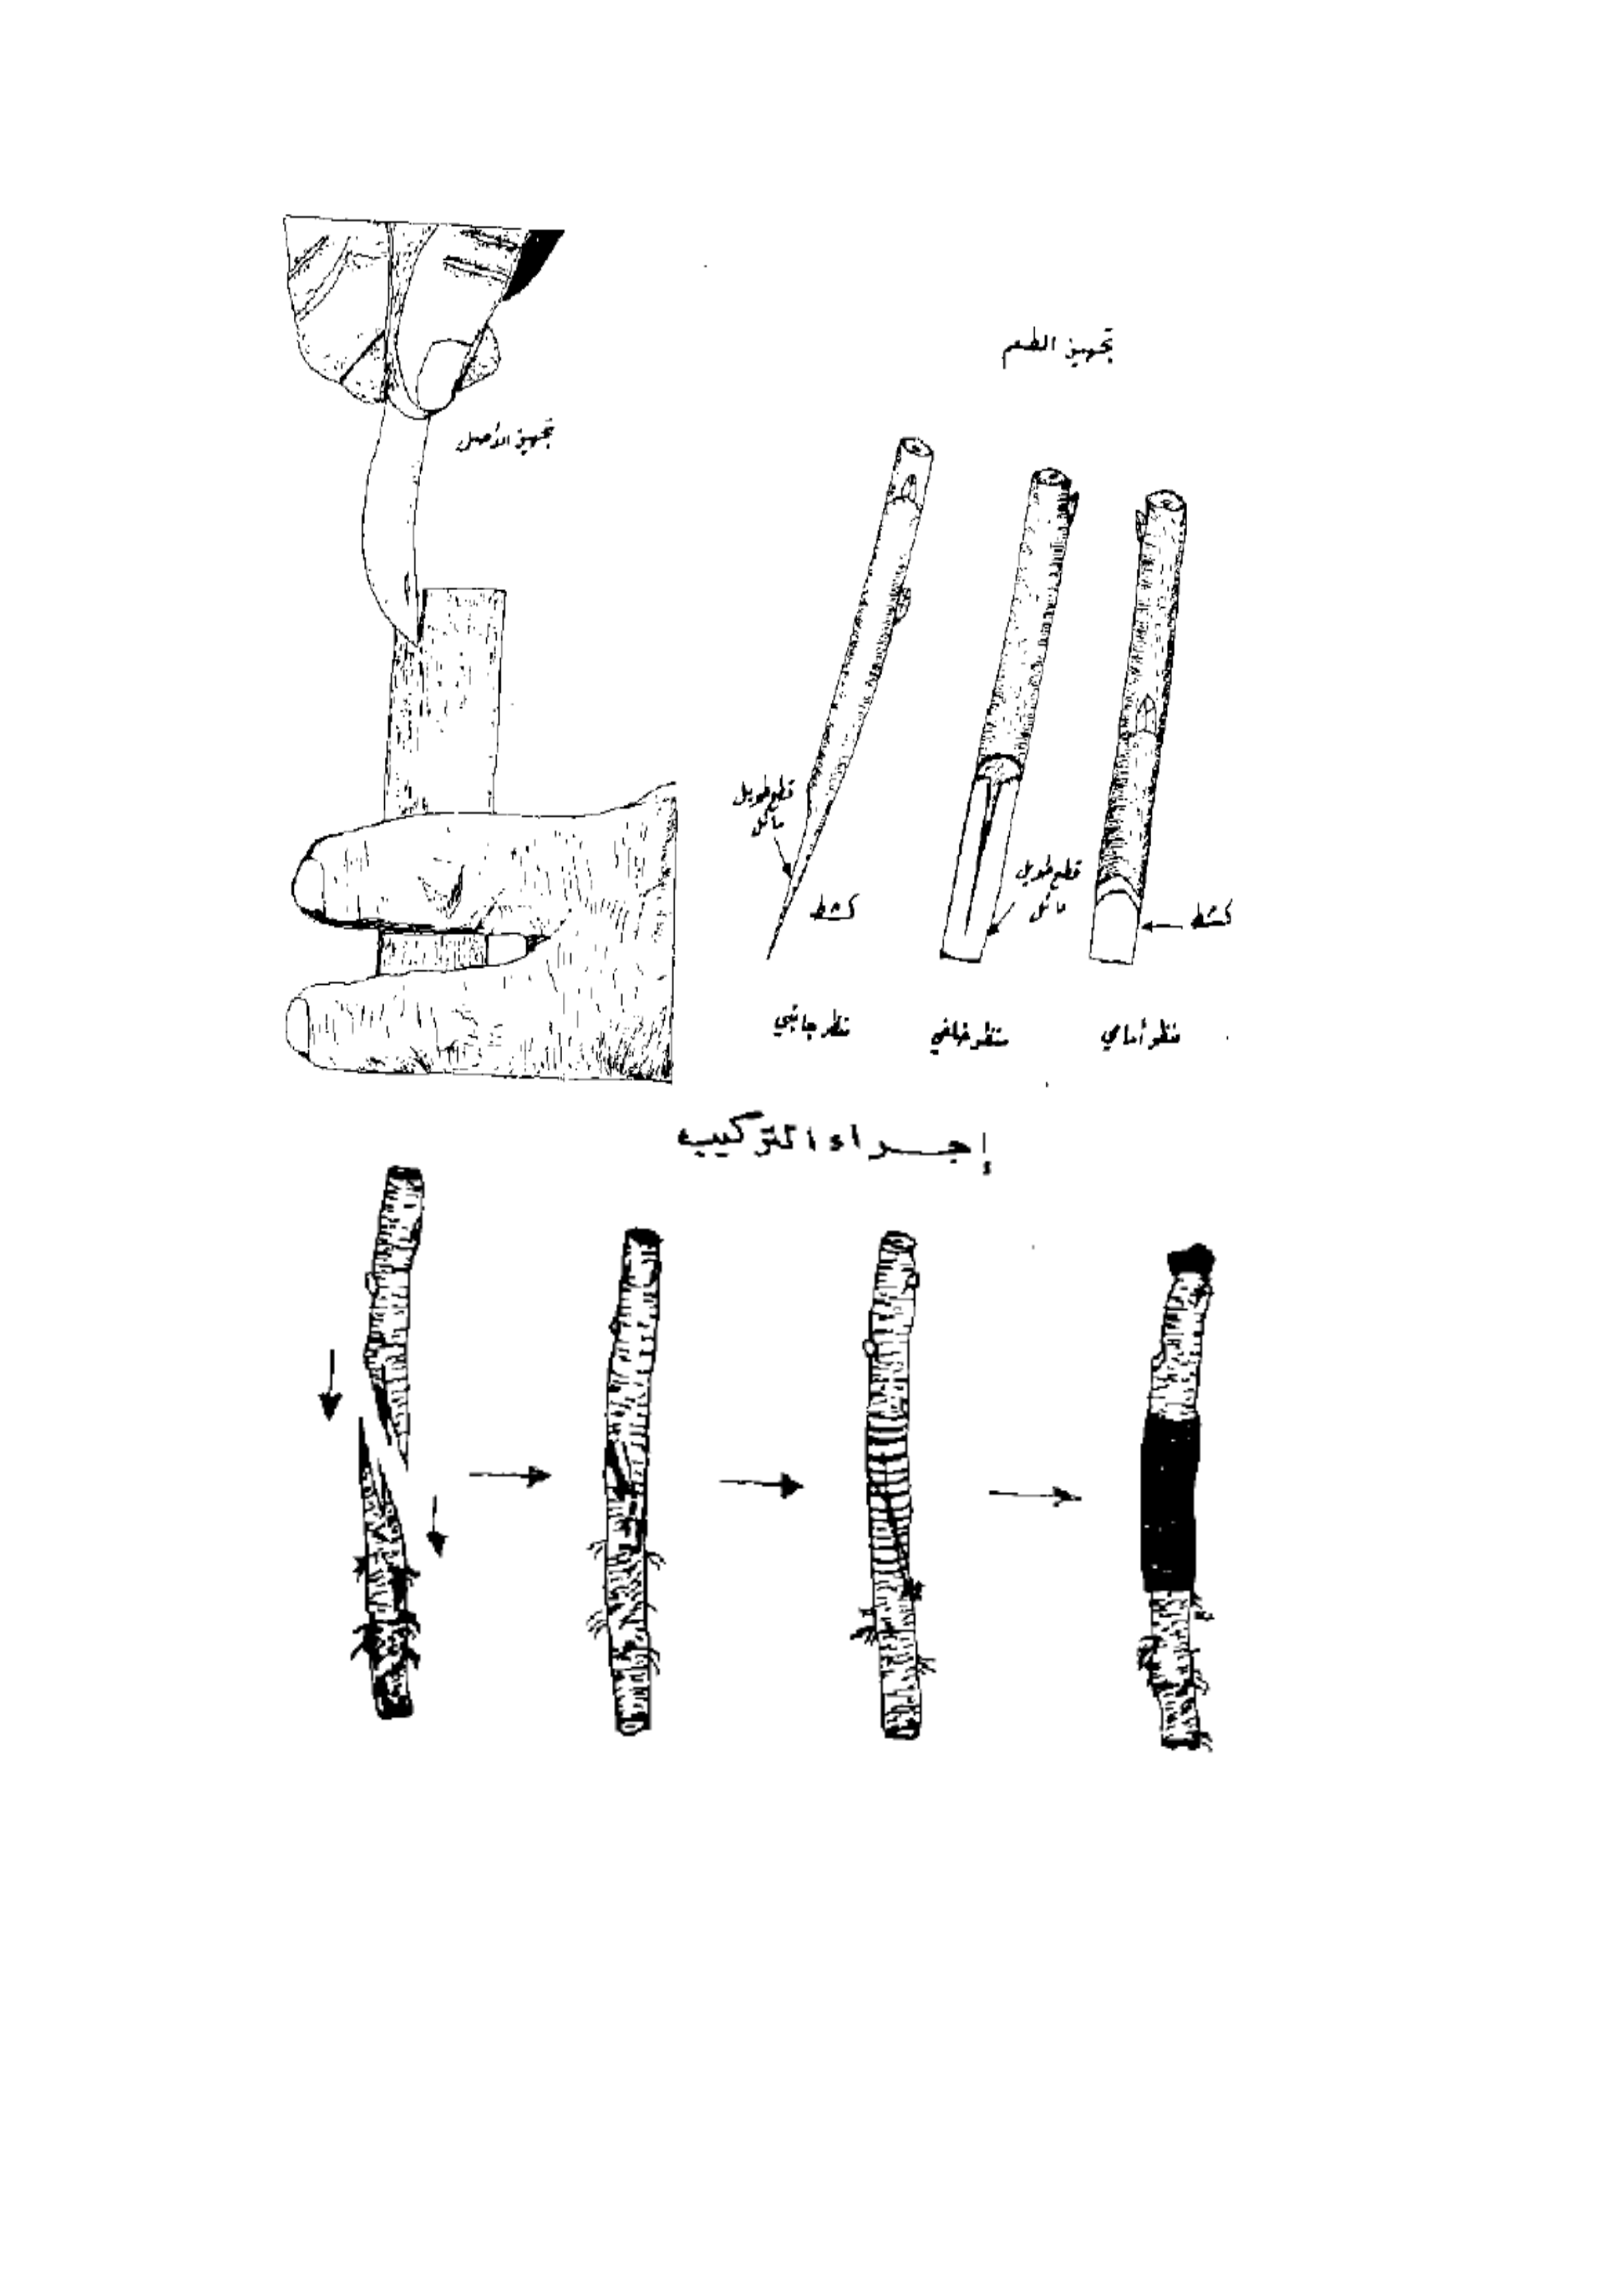 تجهيز الطعم
تجهيز الأصل
قطع طويل
مائل
كشط
قطع طويل
مائل
كشط
منظر أمامي
منظر خلفي
منظر جانبي
إجراء التركيب